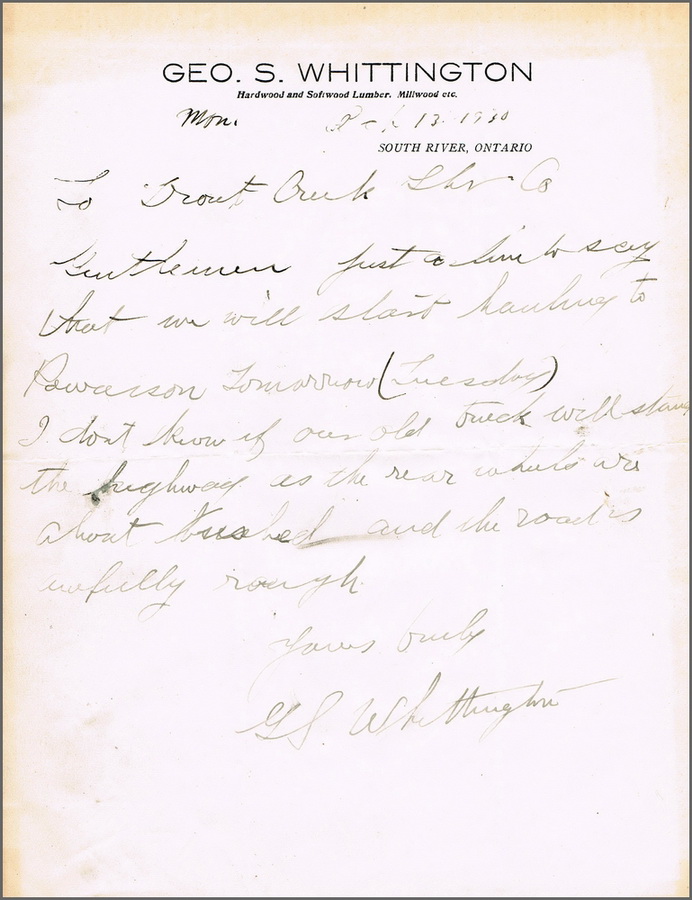 GEO. S. WHITTINGTON
Hardwood and Softwood Lumber. Millwood etc.
Mon. 13. 1930
SOUTH RIVER, ONTARIO
To Trout Creek Lbr Co
Gentlemen just a line to say
that we will start hauling to
Powasson Tomorrow (Tuesday)
I dont know if our old truck will stand
the highway as the rear wheels are
about and the road is
awfully rough
Yours truly
G S. Whittington